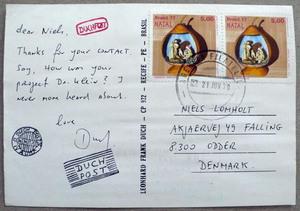 dear Niels,
DUCHPOST
Thanks for your CONTACT.
Say, How was your
project Dr. Klein? I
never more heard about.
love
Duch
DUCH
POST
LEONHARD FRANK DUCH - CP 522 - RECIFE - PE - BRASIL
Brasil 77 5,00
NATAL
Brasil 77 5,00
NATAL
21
NIELS LOMHOLT
AKJAERVEJ 49 FALLING
8300 ODDER
DENMARK